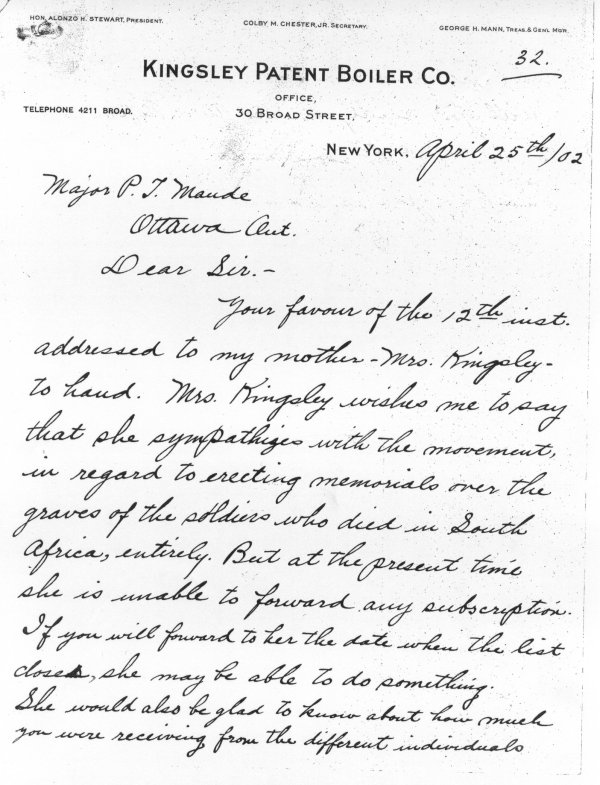 HON. ALONZO H. STEWART, PRESIDENT.
COLBY M. CHESTER, JR. SECRETARY.
GEORGE H. MANN, TREAS. & GENL MGR.
32.
KINGSLEY PATENT BOILER CO.
OFFICE,
30 BROAD STREET,
TELEPHONE 4211 BROAD.
NEW YORK, April 25th/02
Major P. T. Maude
Ottawa Ont.
Dear Sir.-
Your favour of the 12th inst.
addressed to my mother - Mrs. Kingsley -
to hand. Mrs. Kingsley wishes me to say
that she sympathizes with the movement,
in regard to erecting memorials over the
graves of the soldiers who died in South
Africa, entirely. But at the present time
she is unable to forward any subscription.
If you will forward to her the date when the list
closes, she may be able to do something.
She would also be glad to know about how much
you were receiving from the different individuals